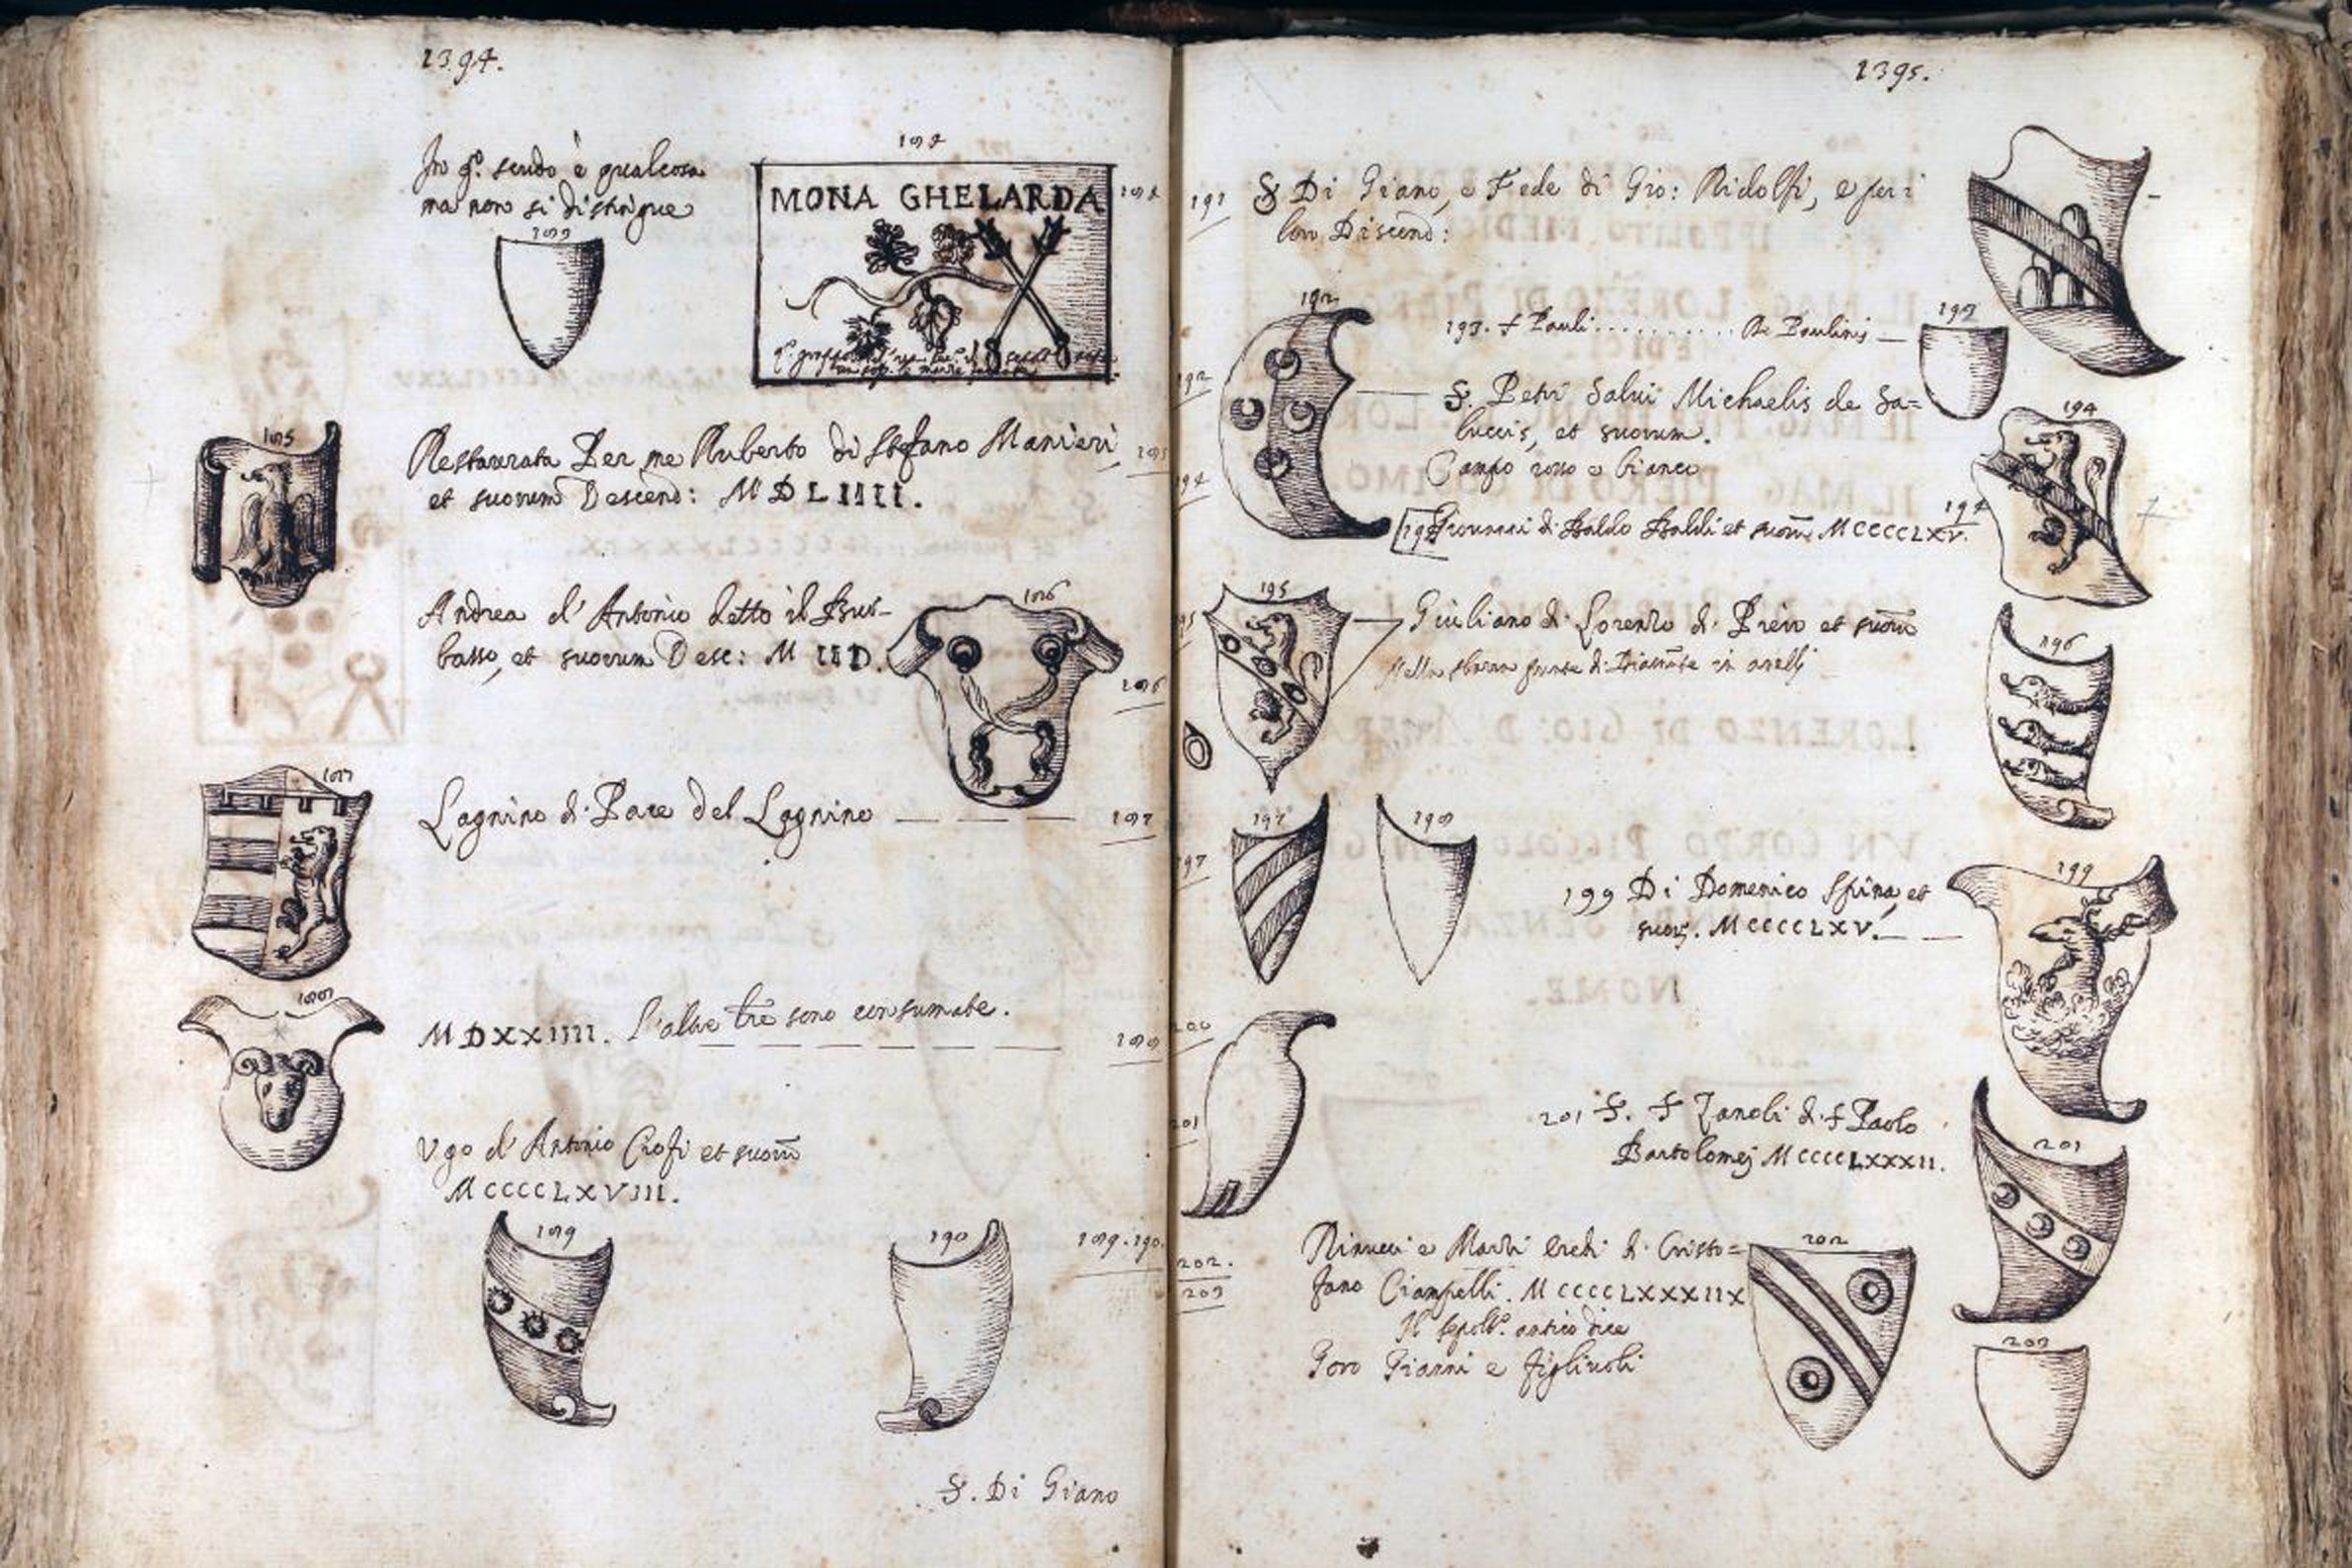 1394.
In q.o scudo è qualcosa
ma non si distingue
183
184
MONA GHELARDA
184
185
Restaurata Per me Ruberto di Stefano Manieri
et suorum Descend: MDLIIII.
185
Andrea d'Antonio detto il Bus-
basso, et suorum Desc: M IIID.
186
186
187
Lagnino di Pace del Lagnino
187
188
MDXXIIII. L'altre tre sono consumate.
188
Ugo d'Antonio Crofi et suor̄
MCCCCLXVIII.
189
190
189.190.
S. Di Giano
1395.
191
S Di Giano, e Fede di Gio: Ridolfi, e
loro Discend:
192
193. f Pauli........... De Paulinis
193
192
S. Petri Salui Michaelis de Sa=
luccis, et suorum.
Campo rosso e bianco
194
194
194
Giovanni di Baldo Baldi et suor̄ MCCCCLXV.
195
195
Giuliano di Lorenzo di Piero et suor̄
nella sbarra punte di Diamante in anelli
196
197
198
197
199
199 Di Domenico Spina, et
suor. MCCCCLXV.
200
201
201 S. f Zanoli di f Paolo
Bartolomej MCCCCLXXXII.
201
202.
203
Rinucci e Marti eredi di Cristo=
fano Ciampelli. MCCCCLXXXIIX
Il sepolt.o antico dice
Goro Gianni e figliuoli
202
203